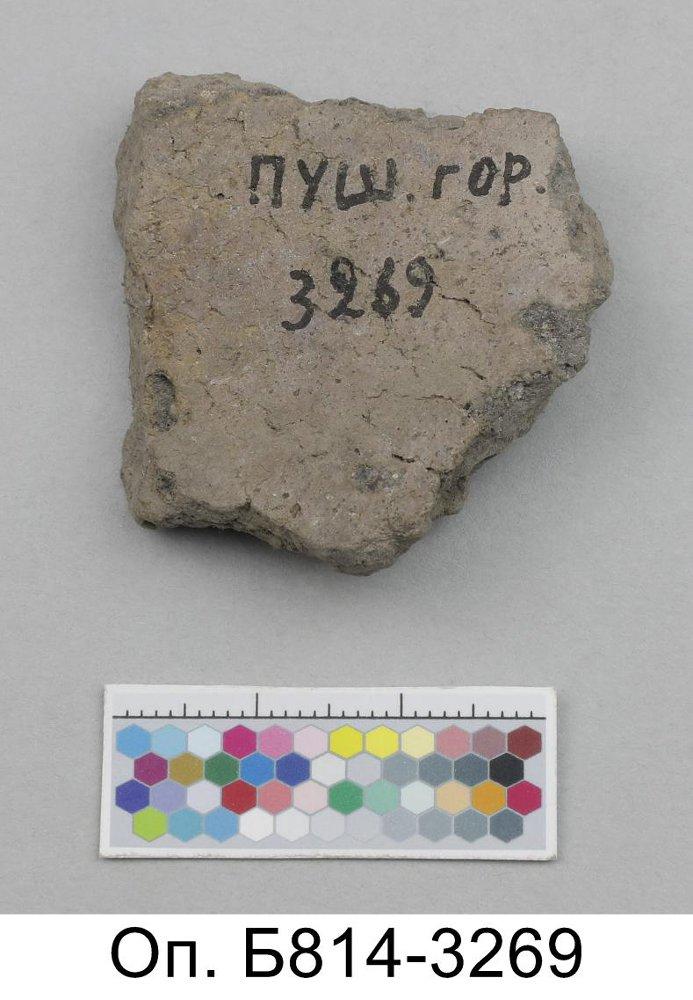 ПУШ. ГОР.
3269
Оп. Б814-3269